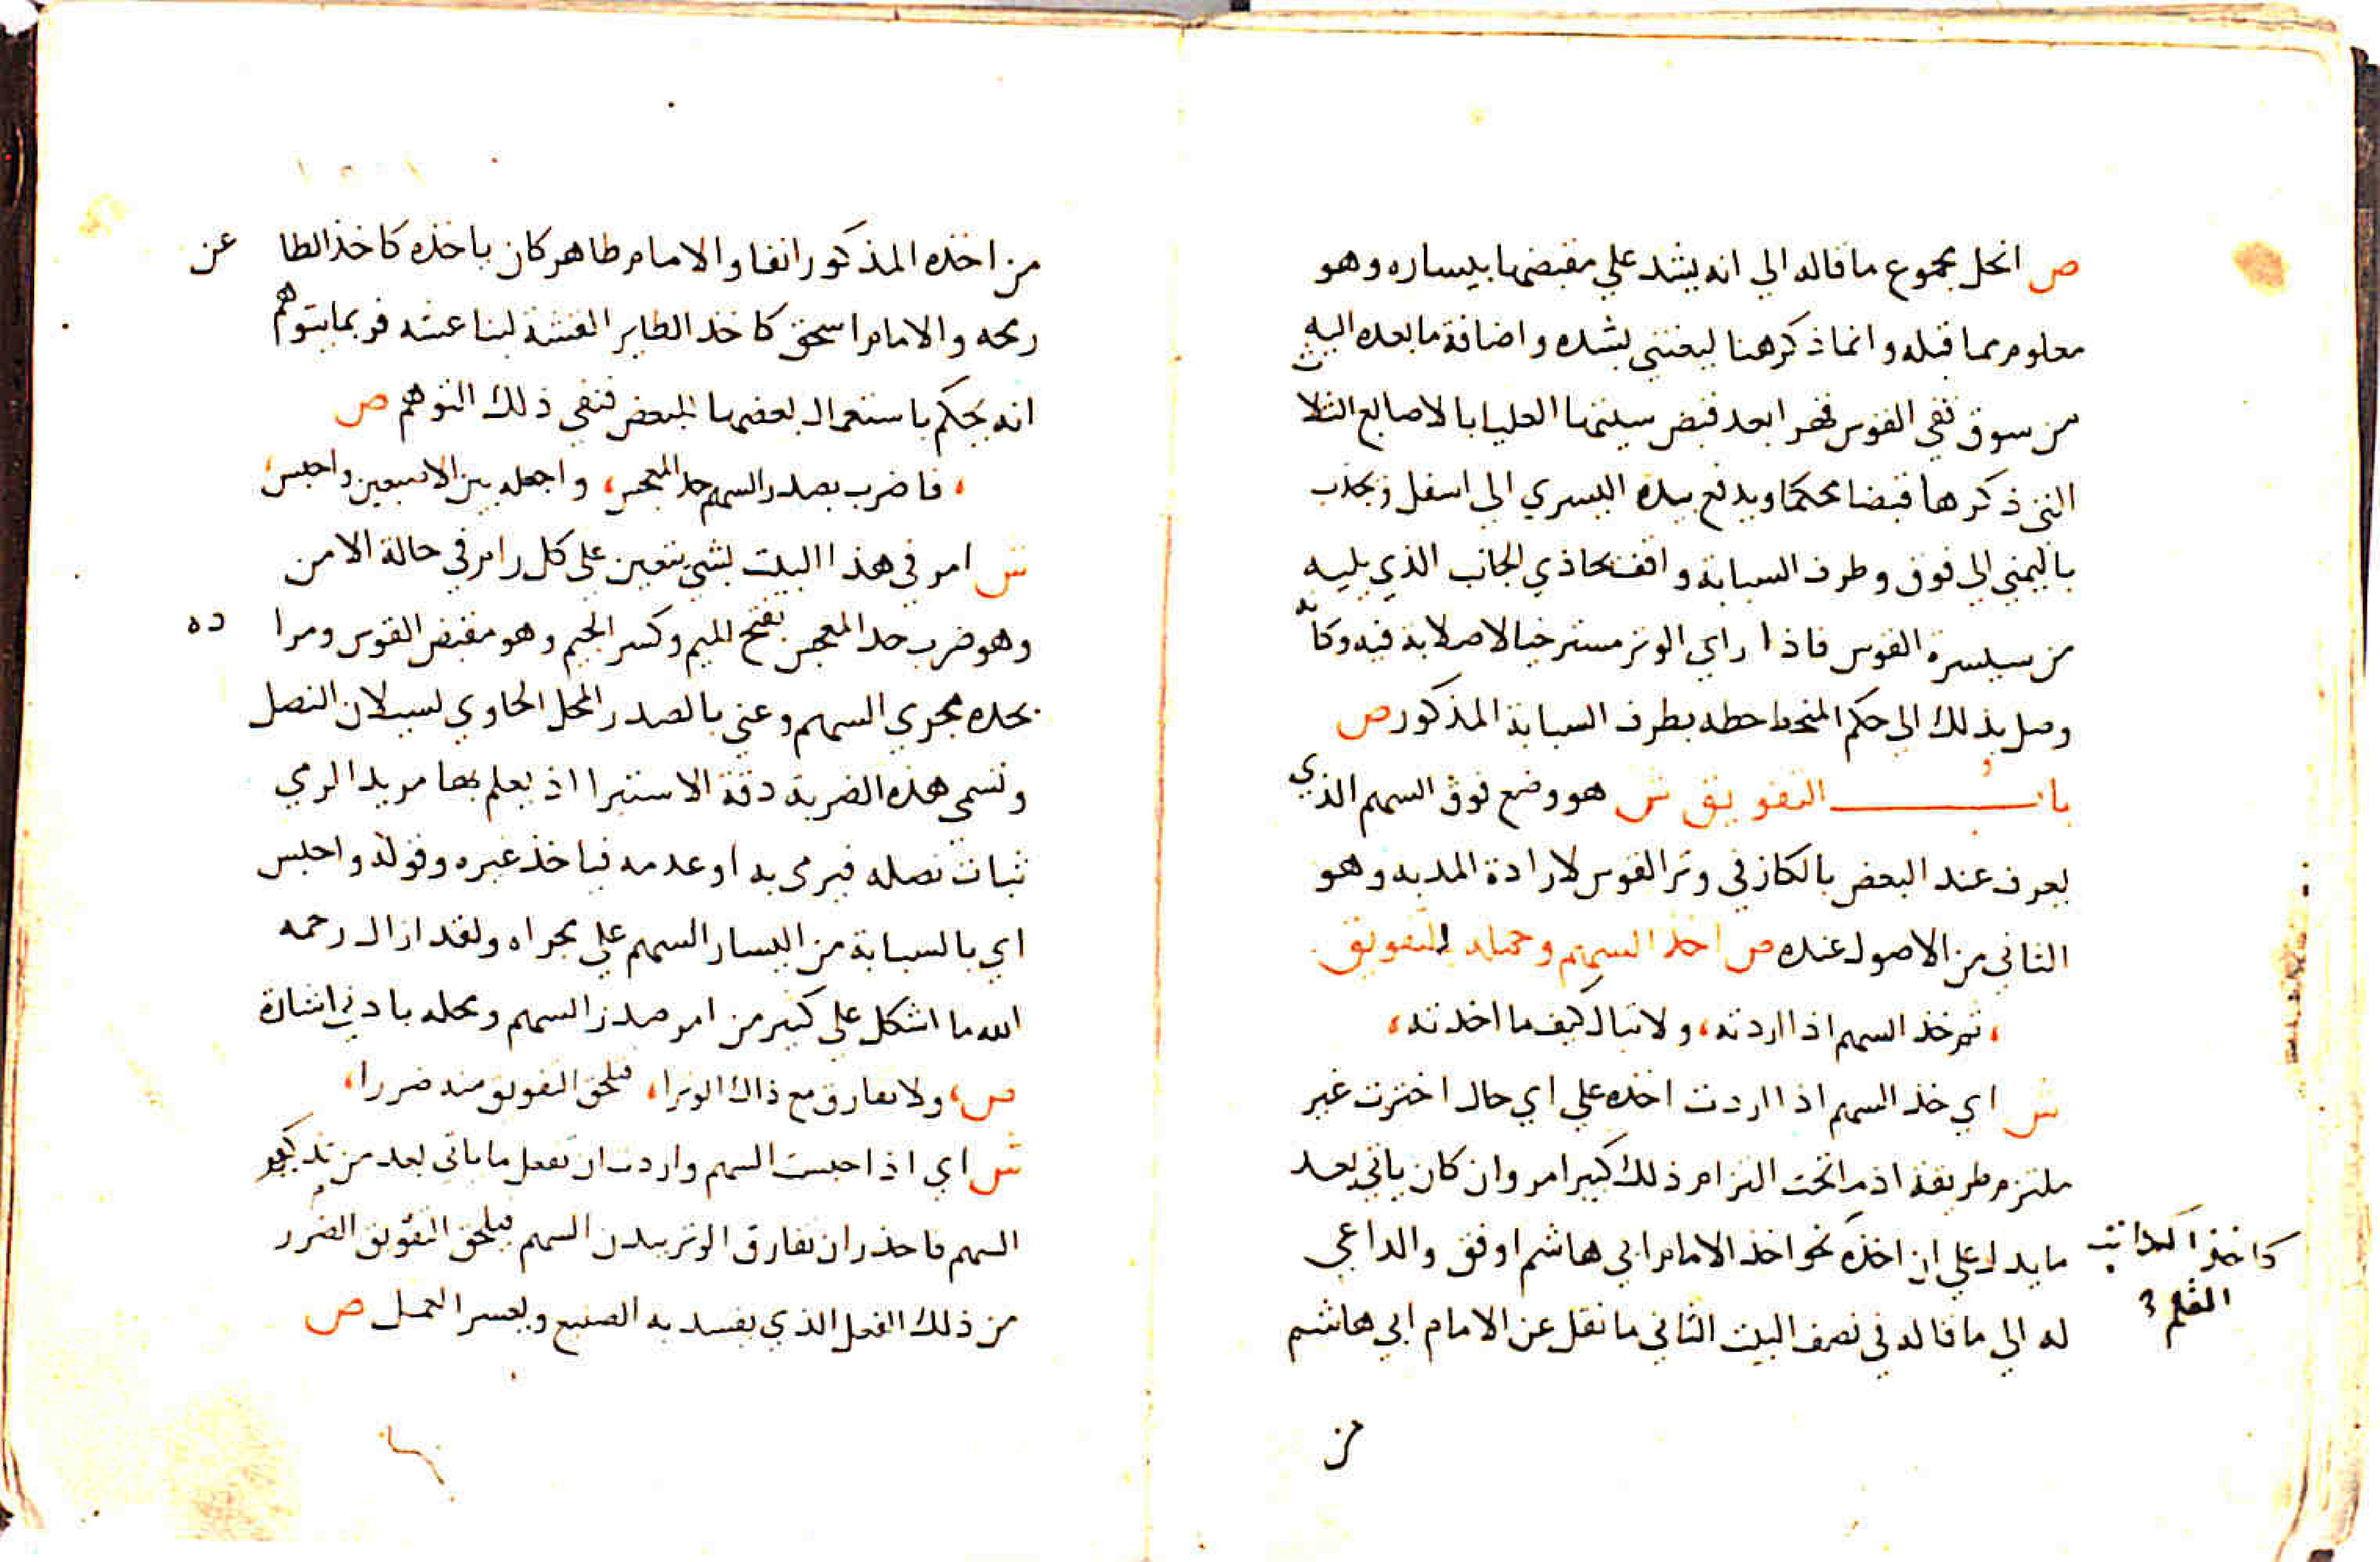 ص انحل مجموع ما قاله الي انه يشد علي مقبضها بيساره وهو
معلوم مما قبله وانما ذكر هنا ليعتني بشده واضافة ما بعده اليه
من سوق نفي القوس قهرا بعد قبض سيتها العليا بالاصابع الثلاث
التي ذكرها قبضا محكما ويدفع بيده اليسري الي اسفل ويجذب
باليمني الي فوق وطرف السبابة واقف بحاذي الجانب الذي يليه
من سيسرة القوس فاذا راي الوتر مسترخيا لا صلابة فيه وكانه
وصل بذلك الي حكم المنحط حطه بطرف السبابة المذكور ص
باب التفويق ش هو وضع فوق السهم الذي
يعرف عند البعض بالكاز في وتر القوس لارادة المد به وهو
الثاني من الاصول عنده ص اخذ السهم وحمله للتفويق
، ثم خذ السهم اذا اردته ، ولا تبال كيف ما اخذته ،
ش اي خذ السهم اذا اردت اخذه علي اي حال اخترت غير
ملتزم طريقة اذ ما تحت التزام ذلك كبير امر وان كان ياتي بعد
ما يدل علي ان اخذه نحو اخذ الامام ابي هاشم اوفق والداعي
كاخذ الكاتب
القلم
له الي ما قاله في نصف البيت الثاني ما نقل عن الامام ابي هاشم
من
من اخذه المذكور انفا والامام طاهر كان ياخذه كاخذ الطاعن
رمحه والامام اسحق كاخذ الطاير القشة لبنا عشه فربما يتوهم
انه يحكم باستعمال بعضها لبعض فنفي ذلك التوهم ص
، فاضرب بصدر السهم حد المعجس ، واجعله بين الاصبعين واحبس ،
ش امر في هذا البيت بشي يتعين علي كل رام في حالة الامن
وهو ضرب حد المعجس بفتح الميم وكسر الجيم وهو مقبض القوس ومراده
بحده مجري السهم وعني بالصدر المحل الحاوي لسيلان النصل
وتسمي هذه الضربة دقة الاستبرا اذ يعلم بها مريد الرمي
ثبات نصله فيرمي به او عدمه فياخذ غيره وقوله واحبس
اي بالسبابة من اليسار السهم علي مجراه ولقد ازال رحمه
الله ما اشكل علي كثير من امر صدر السهم ومحله بادني اشارة
ص ، ولا تفارق مع ذاك الوترا ، فيلحق التفويق منه ضررا ،
ش اي اذا حبست السهم واردت ان تفعل ما ياتي بعد من
السهم فاحذر ان تفارق الوتر ببدن السهم فيلحق التفويق الضرر
من ذلك الفعل الذي يفسد به الصنيع ويعسر العمل ص